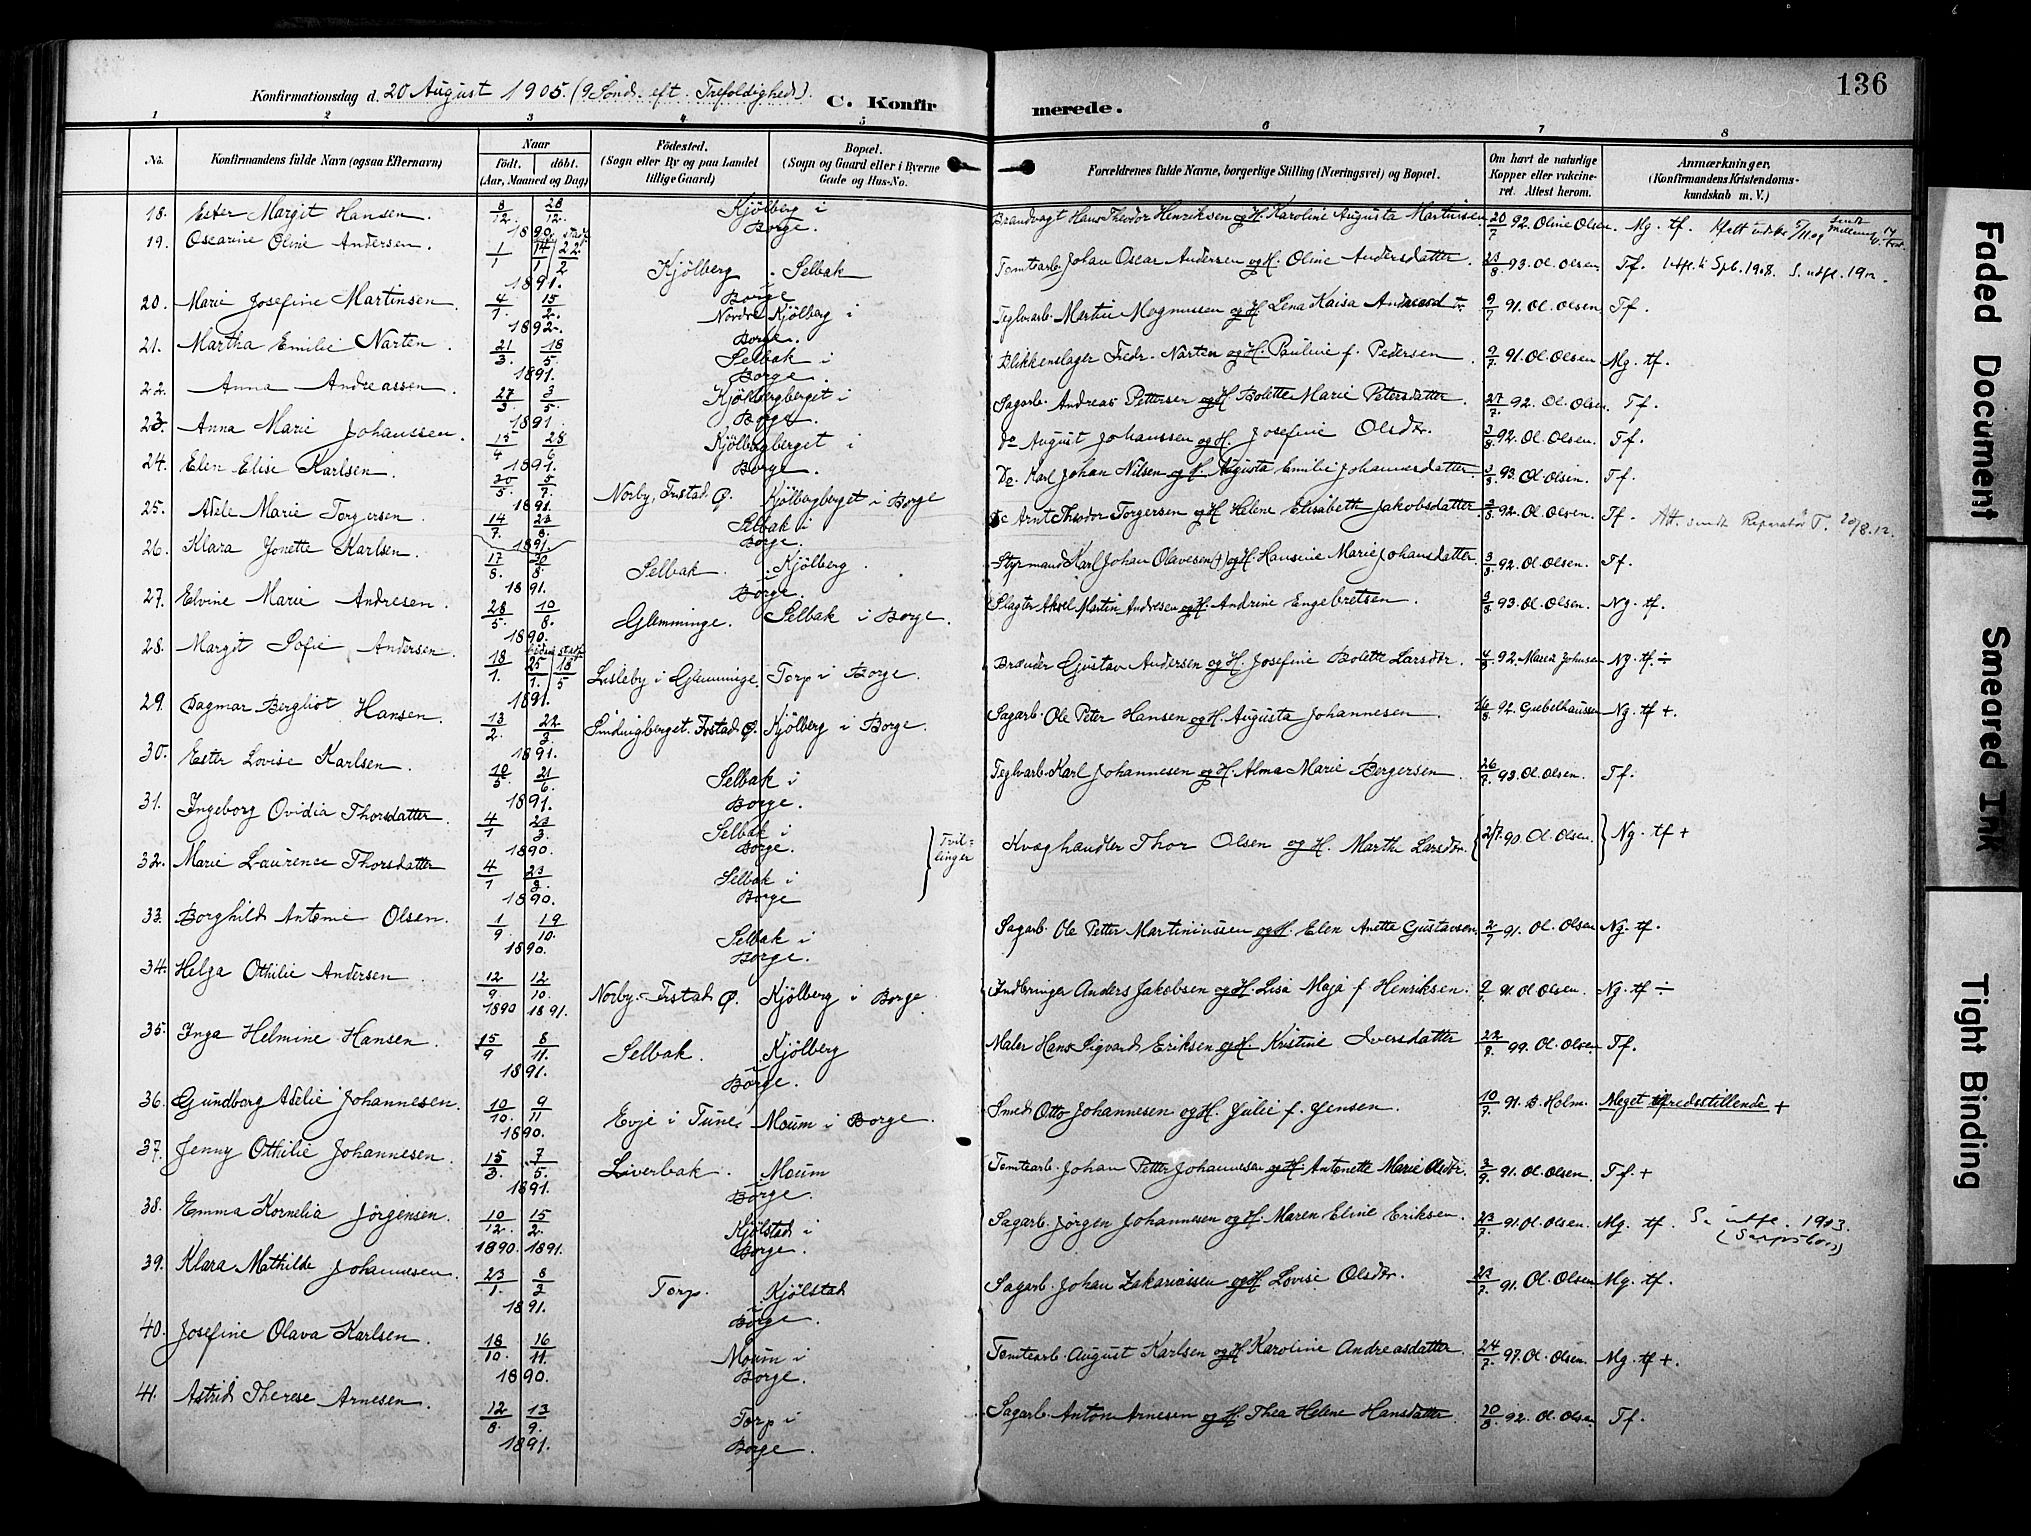 136
Konfirmationsdag d. 20 August 1905. (9 Sönd. eft. Trefoldighed).
C. Konfirmerede.
1 2 3 4 5 6 7 8
No. Konfirmandens fulde Navn (ogsaa Efternavn) Naar födt. döbt. (Aar, Maaned og Dag) Födested. (Sogn eller By og paa Landet tillige Gaard) Bopæl. (Sogn og Gaard eller i Byerne Gade og Hus-No. Forældrenes fulde Navne, borgerlige Stilling (Næringsvei) og Bopæl. Om havt de naturlige Kopper eller vaccineret. Attest herom. Anmærkninger. (Konfirmandens Kristendomskundskab m. V.)
18. Ester Margit Hansen. 8/12. 28/12. 1890. Kjölberg i Borge. Brandvagt Hans Theodor Henriksen og H. Karoline Augusta Martinsen 20/7 92. Oline Olsen. Mg. tf.
19. Oscarine Oline Andersen. 1/1 14/1 22/2 1891. Kjölberg Selbak Borge Tomtearb. Johan Oscar Andersen og H. Oline Andersdatter. 23/8 93. Ol. Olsen. Tf.
20. Marie Josefine Martinsen 4/1. 15/2. 1892. Nordre Kjölberg i Borge. Teglvarb. Martin Magnussen og H. Lena Kaisa Andreasd tr. 9/7 91. Ol. Olsen Tf.
21. Martha Emilie Narten. 21/3. 18/5. 1891. Selbak i Borge. Blikkenslager Fredr. Narten og H. Pauline f. Pedersen. 9/7 91. Ol. Olsen Mg. tf.
22. Anna Andreassen 27/3. 3/5. 1891. Kjölbergberget i Borge. Sagarb. Andreas Pettersen og H. Bolette Marie Petersdatter. 27/7 92. Ol. Olsen. Tf.
23. Anna Marie Johanssen. 15/4 28/6 1891. Kjölbergberget i Borge. Do August Johanssen og H. Josefine Olsdtr. 3/8 92. Ol. Olsen. Tf.
24. Elen Elise Karlsen. 30/5. 5/7. 1891. Norby, Frstad Ø. Kjölbergberget i Borge Do. Karl Johan Nilsen og H. Augusta Emilie Johannesdatter 3/8 93. Ol. Olsen. Tf.
25. Adele Marie Torgersen. 14/7. 23/8. 1891. Selbak i Borge. Do Arnt Theodor Torgersen og H. Helene Elisabeth Jakobsdatter 3/8 92. Ol. Olsen. Tf. Att. sendt Reparatør T. 20/8.12.
26. Klara Jonette Karlsen. 17/8. 30/8. 1891. Selbak. Kjölberg i Borge. Styrmand Karl Johan Olavesen (+) og H. Hansine Marie Johansdatter. 3/8 92. Ol. Olsen. Tf.
27. Elvine Marie Andresen. 28/5. 10/8. 1890. Glemminge. Selbak i Borge. Slagter Aksel Martin Andresen og H. Andrine Engebretsen. 3/8 93. Ol. Olsen. Ng. tf.
28. Margit Sofie Andersen. 18/1. 25/1. 18/5 1891. Lisleby i Glemminge. Torp i Borge. Brænder Gustav Andersen og H. Josefine Bolette Larsdtr. 4/8 92. Maren Johnsen Ng. tf. ÷
29. Dagmar Bergliot Hansen. 13/2. 22/3 1891. Kjölberg i Borge. Sagarb. Ole Peter Hansen og H. Augusta Johannesen. 16/8 92. Giebelhausen Ng. tf +.
30. Ester Lovise Karlsen. 10/5. 21/6. 1891. Selbak i Borge. Teglvarb. Karl Johannesen og H. Alma Marie Bergersen. 26/7 93. Ol. Olsen. Tf.
31. Ingeborg Ovidia Thorsdatter. 4/1 23/3. 1890. Selbak i Borge. Tvillinger Kvæghandler Thor Olsen og H. Marthe Larsdtr. 2/7. 90. Ol. Olsen. Ng. tf +
32. Marie Laurence Thorsdatter 4/1 23/3. 1890. Selbak i Borge
33. Borghild Antonie Olsen. 1/9. 19/10. 1890. Selbak i Borge. Sagarb. Ole Petter Martiniussen og H. Elen Anette Gustavsen. 2/7 91. Ol. Olsen Ng. tf.
34. Helga Othilie Andersen. 12/9. 12/10. 1890 1891. Norby, Frstad Ø. Kjölberg i Borge. Indbringer Anders Jakobsen og H. Lisa Maja f. Henriksen. 91. Ol. Olsen. Ng. tf ÷
35. Inga Helmine Hansen. 15/9 8/11. 1891. Selbak. Kjölberg i Borge. Maler Hans Sigvard Eriksen og H. Kristine Iversdatter 99. Ol. Olsen Tf.
36. Gundborg Adelie Johannesen. 10/10. 9/11 1890. Evje i Tune. Moum i Borge. Smed Otto Johannesen og H. Julie f. Jensen. 10/7. 91. B. Holm. Meget tilfredsstillende +
37. Jenny Othilie Johannesen. 15/3. 7/5. 1891. Liverbak. Moum i Borge. Tomtearb. Johan Petter Johannesen og H. Antonette Marie Olsdtr. 91. Ol. Olsen. Tf. +
38. Emma Kornelia Jörgensen. 10/12. 15/2. 1890. 1891. Kjölstad i Borge. Sagarb. Jörgen Johannesen og H. Maren Eline Eriksen. 23/7 91. Ol. Olsen. Mg. tf. S. utfl. 1913. (Sarpsborg)
39. Klara Mathilde Johannesen. 23/1. 8/3 1891. Torp. Kjölstad i Borge. Sagarb. Johan Zakariassen og H. Lovise Olsdtr. 23/7. 91. Ol. Olsen Mg. tf.
40. Josefine Olava Karlsen. 18/10. 16/11. 1890. Moum i Borge. Tomtearb. August Karlsen og H. Karoline Andreasdatter. 24/7. 97. Ol. Olsen. Mg. tf +.
41. Astrid Therese Arnesen. 12/8. 13/9. 1891. Torp i Borge. Sagarb. Anton Arnesen og H. Thea Helene Hansdatter. 30/8 92. Ol. Olsen Tf.
Faded Document
Smeared Ink
Tight Binding